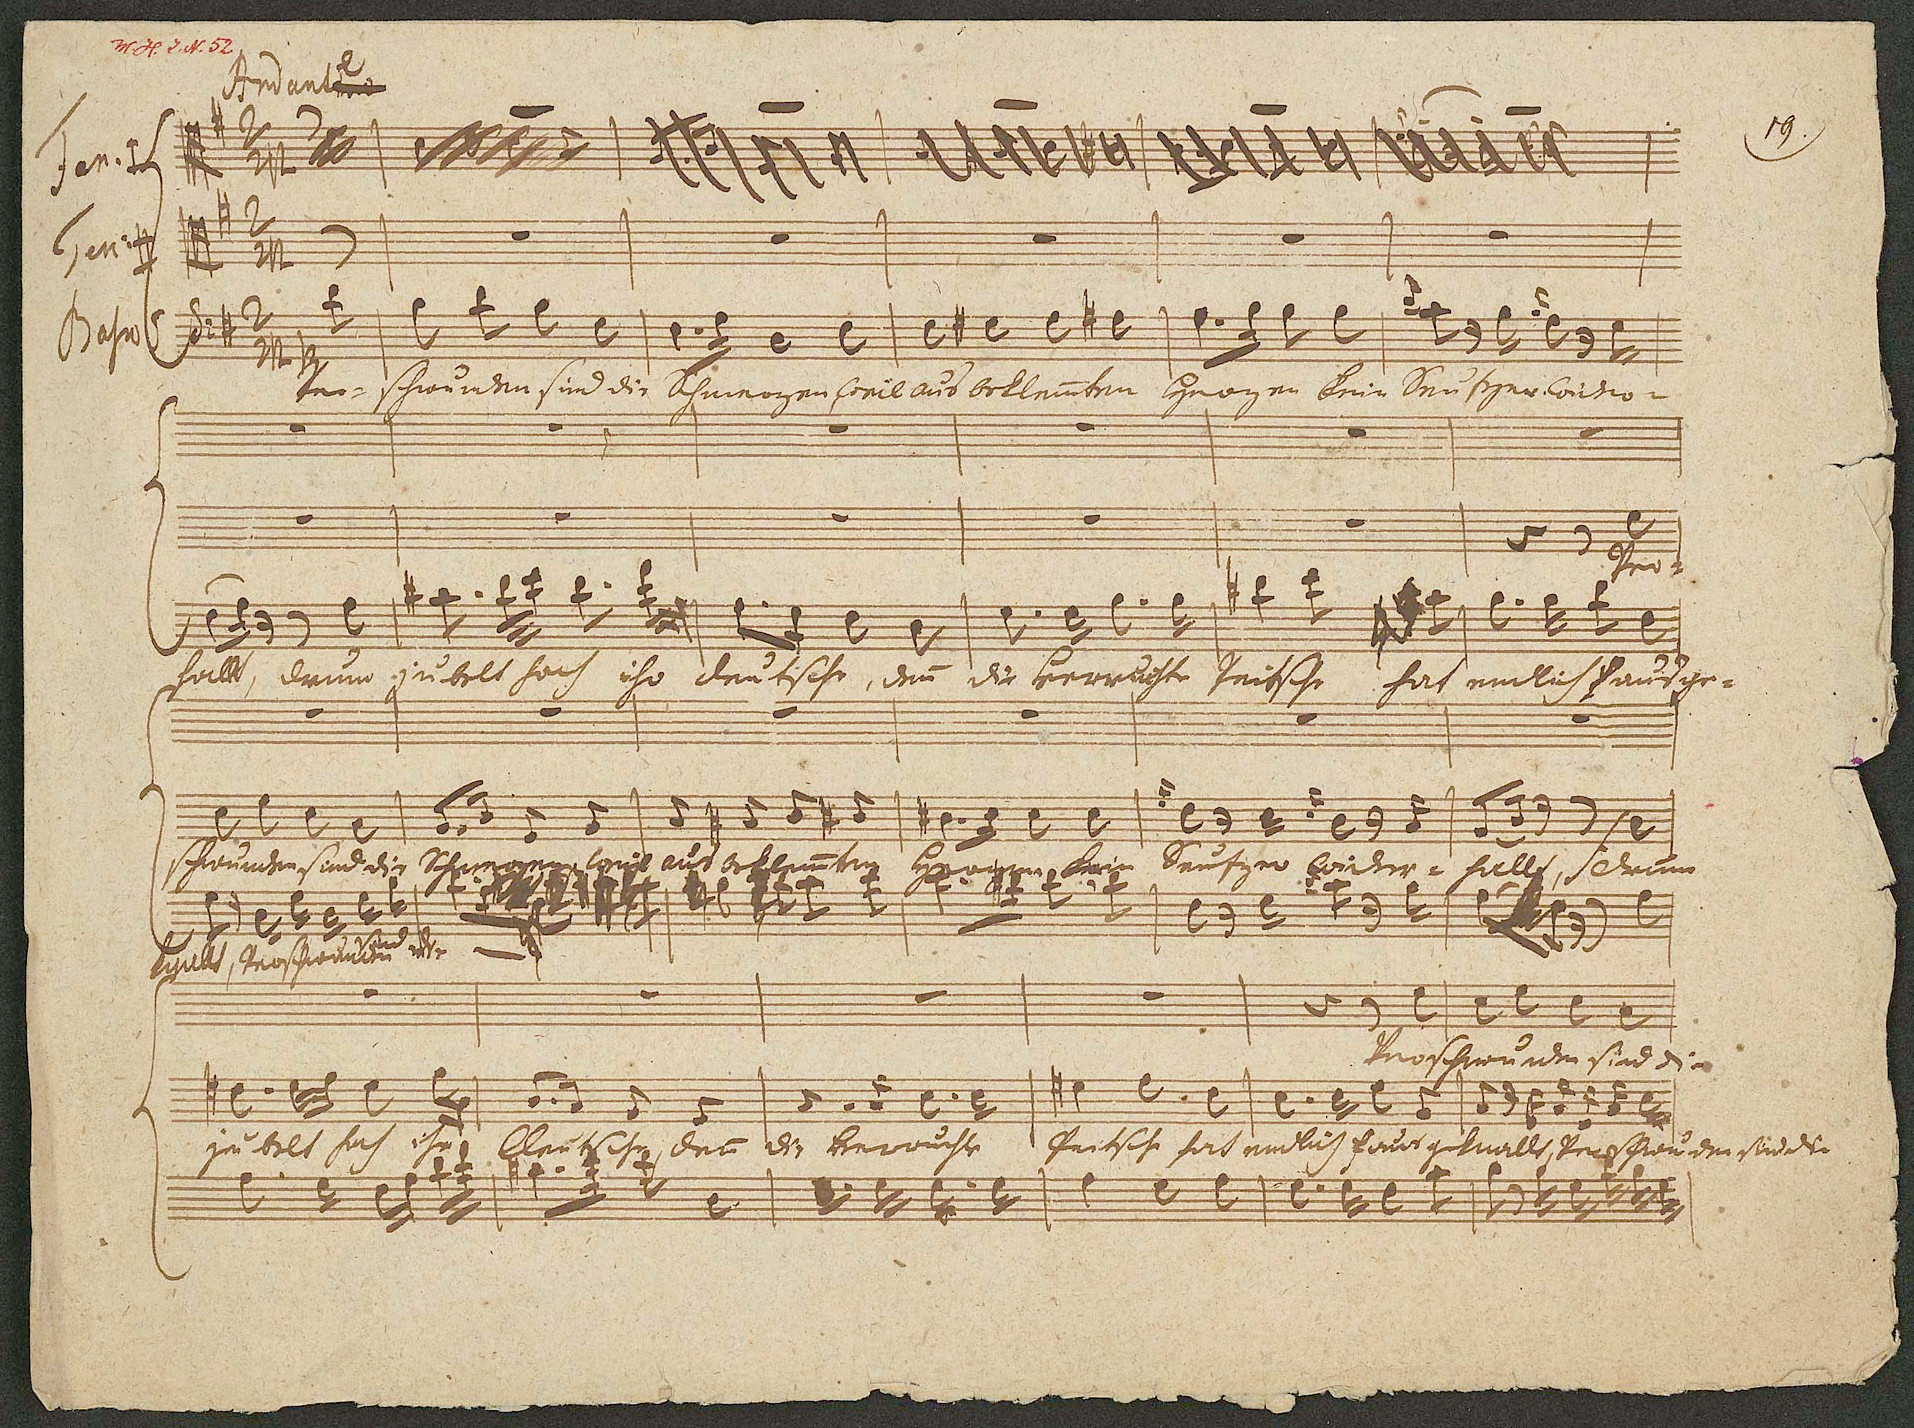 M. H. I. N. 52
Andante
19.
Ten. I
Ten: II
Basso
Ver- schwunden sind die Schmerzen weil aus beklem̄ten Herzen kein Seufzer wieder-
Ver-
hallt, drum jubelt hoch ihr deutsche, den̄ die verruchte Peitsche hat endlich ausge-
schwunden sind die Schmerzen weil aus beklem̄ten Herzen kein Seufzer wieder- hallt, drum
knallt, Verschwunden sind die
Verschwunden sind die
jubelt hoch ihr Deutsche, den̄ die verruchte Peitsche hat endlich ausgeknallt, Verschwunden sind die